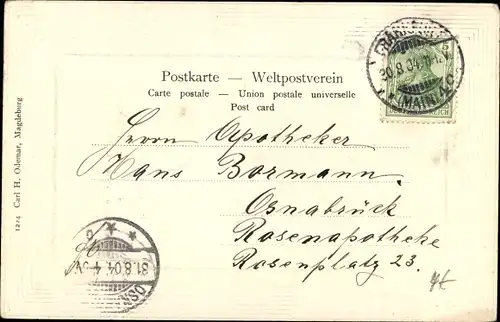 Postkarte — Weltpostverein
Carte postale — Union postale universelle
Post card
FRANKFURT
30.8.04.
(MAIN)
5
REICH
Herrn Apotheker
Hans Bormann.
Osnabrück
Rosenapotheke
Rosenplatz 23.
31.8.04.
OSN
1224 Carl H. Odemar, Magdeburg